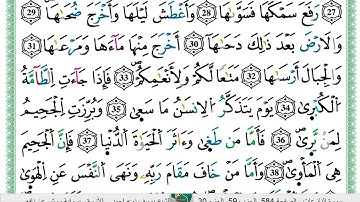 (27) رَفَعَ سَمْكَهَا فَسَوَّىٰهَا (28) وَأَغْطَشَ لَيْلَهَا وَأَخْرَجَ ضُحَىٰهَا (29)
وَالْأَرْضَ بَعْدَ ذَٰلِكَ دَحَىٰهَا (30) أَخْرَجَ مِنْهَا مَآءَهَا وَمَرْعَىٰهَا (31)
وَالْجِبَالَ أَرْسَىٰهَا (32) مَتَٰعًا لَّكُمْ وَلِأَنْعَٰمِكُمْ (33) فَإِذَا جَآءَتِ الطَّآمَّةُ
الْكُبْرَىٰ (34) يَوْمَ يَتَذَكَّرُ الْإِنسَٰنُ مَا سَعَىٰ (35) وَبُرِّزَتِ الْجَحِيمُ
لِمَن يَرَىٰ (36) فَأَمَّا مَن طَغَىٰ وَءَاثَرَ الْحَيَوٰةَ الدُّنْيَا (37) فَإِنَّ الْجَحِيمَ
هِيَ الْمَأْوَىٰ (38) وَأَمَّا مَنْ خَافَ مَقَامَ رَبِّهِ وَنَهَى النَّفْسَ عَنِ الْهَوَىٰ